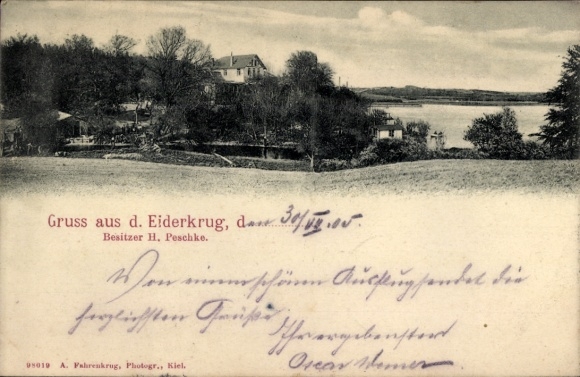 Gruss aus d. Eiderkrug, den 30/VII.05.
Besitzer H. Peschke.
Von einem schönen Ausflug sendet die
herzlichsten Grüße
Ihr ergebenster
Oscar
98019 A. Fahrenkrug, Photogr., Kiel.